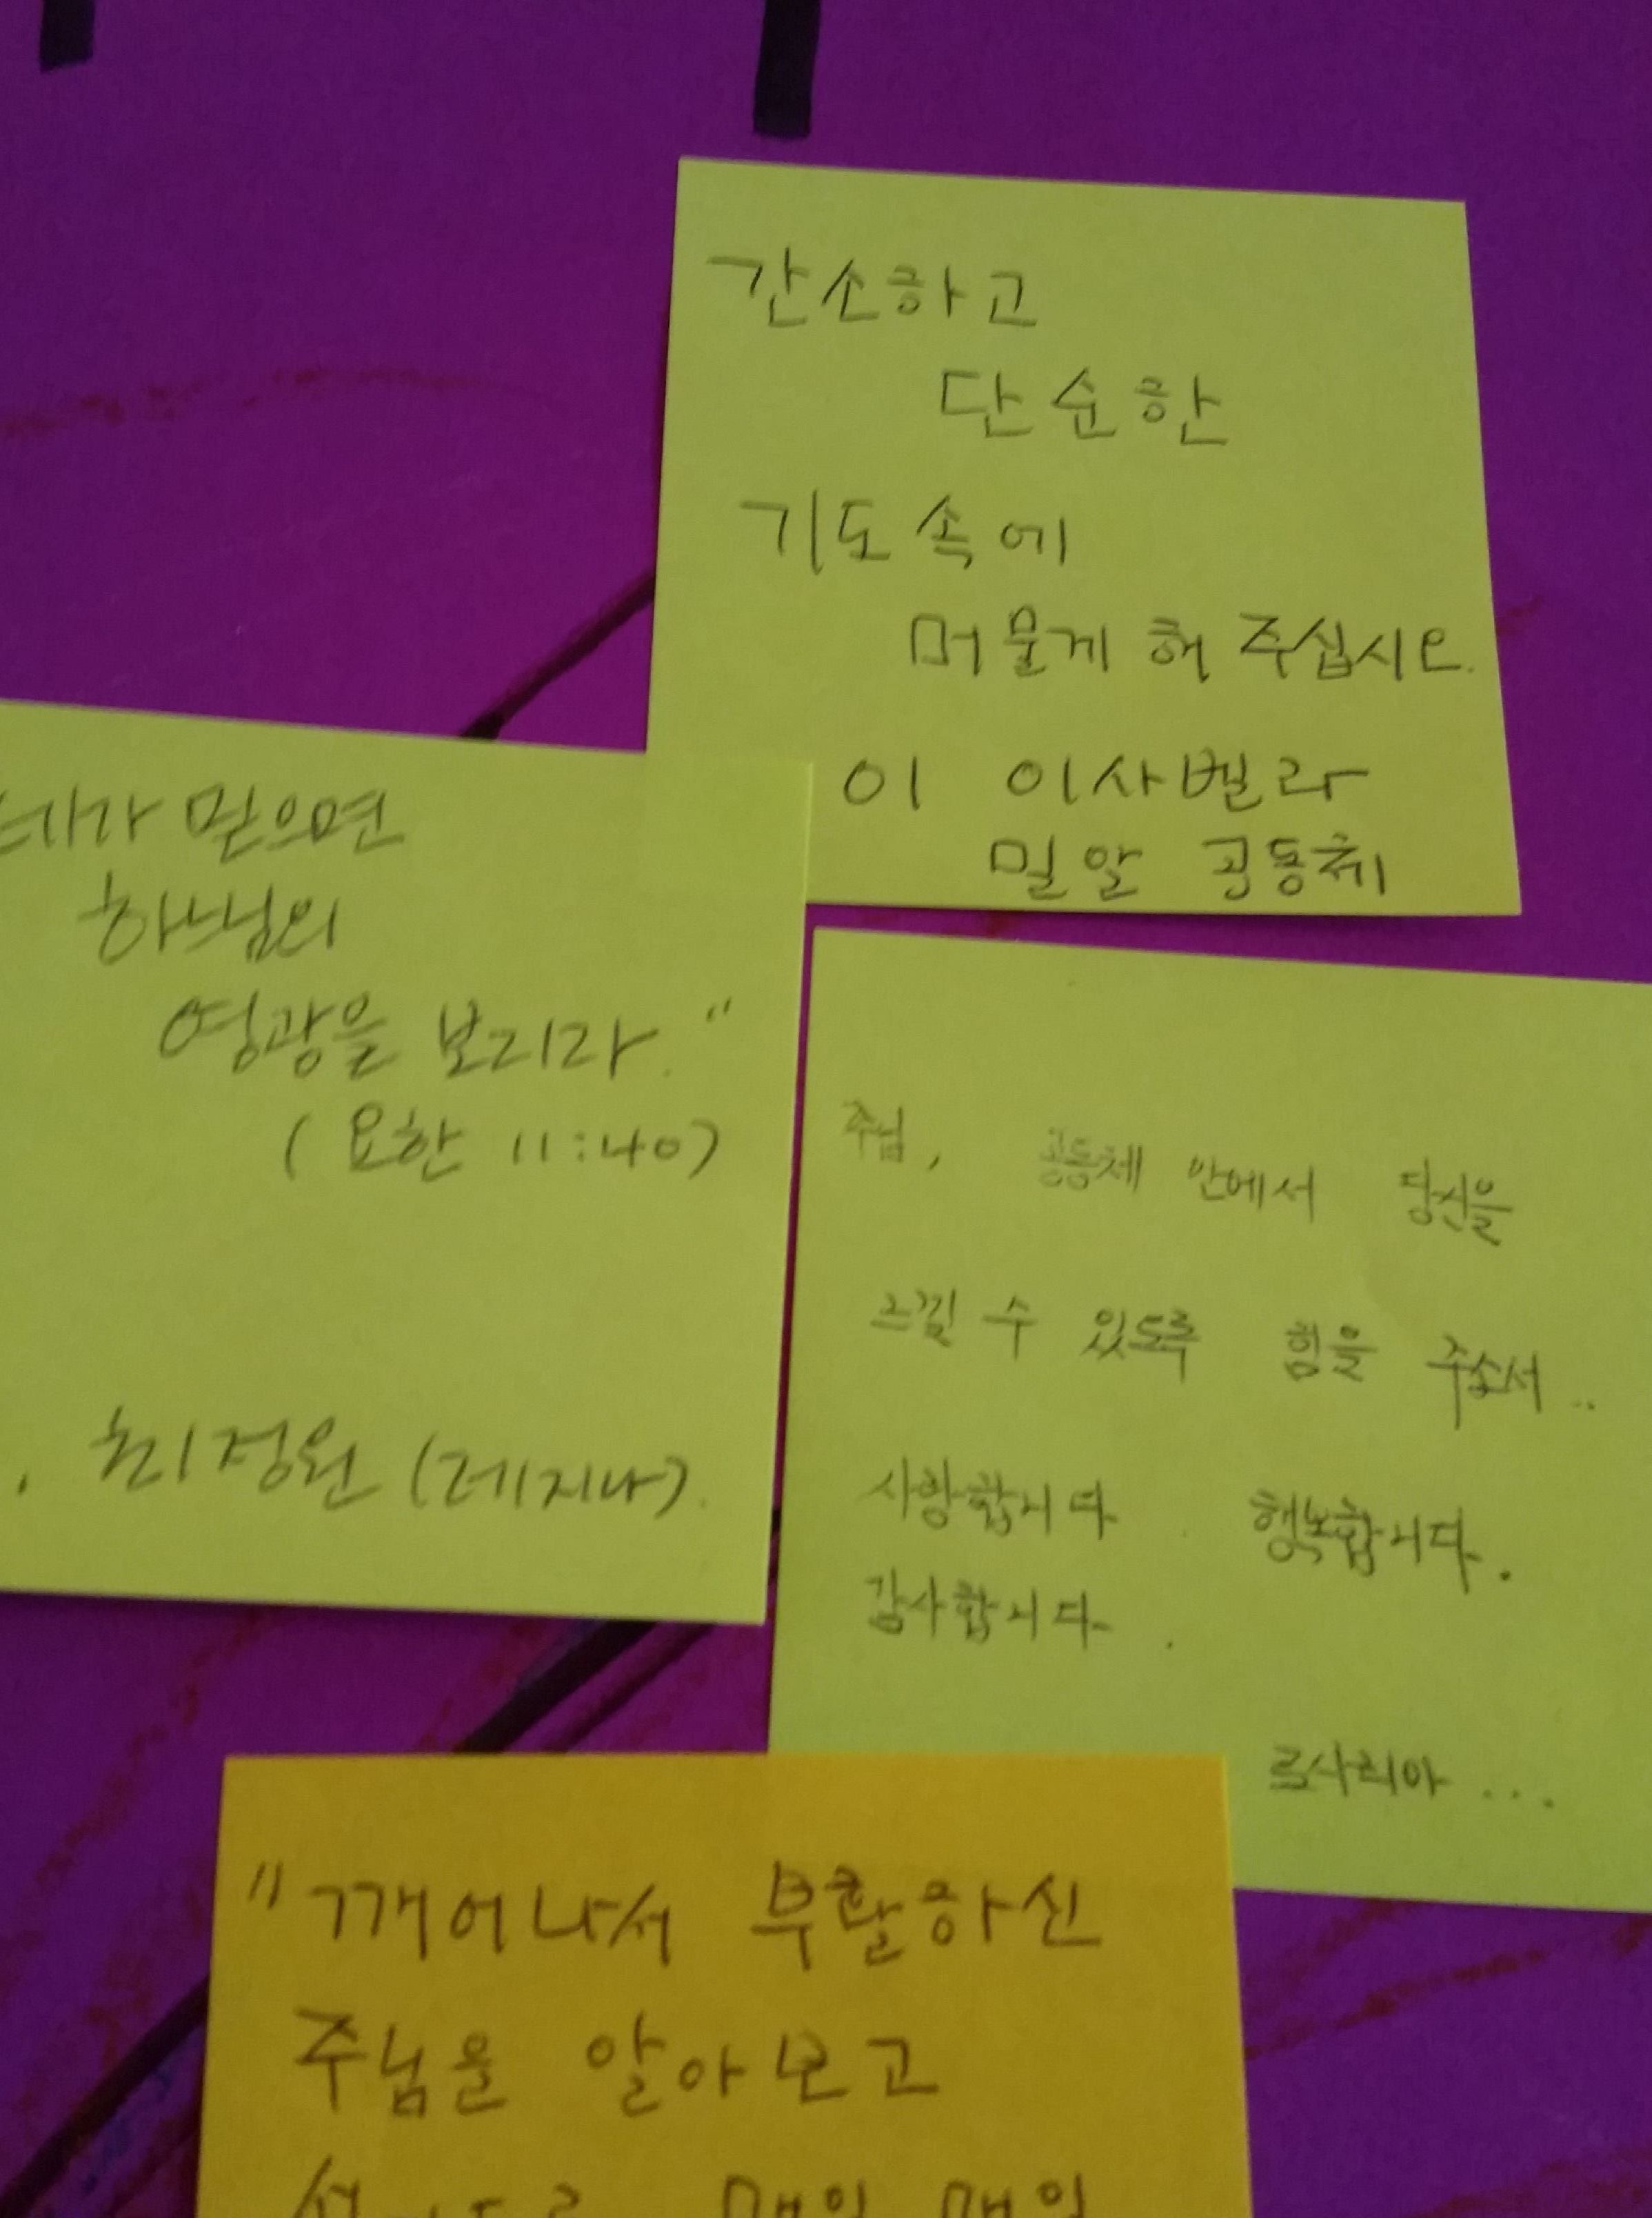 간소하고
단순한
기도속에
머물게 해 주십시오.
이 이사벨라
밀알 공동체
네가 믿으면
하느님의
영광을 보리라."
(요한 11:40)
최정원 (레지나).
주님, 공동체 안에서 당신을
느낄 수 있도록 힘을 주소서..
사랑합니다. 행복합니다.
감사합니다.
로사리아...
"깨어나서 부활하신
주님을 알아보고
매일 매일